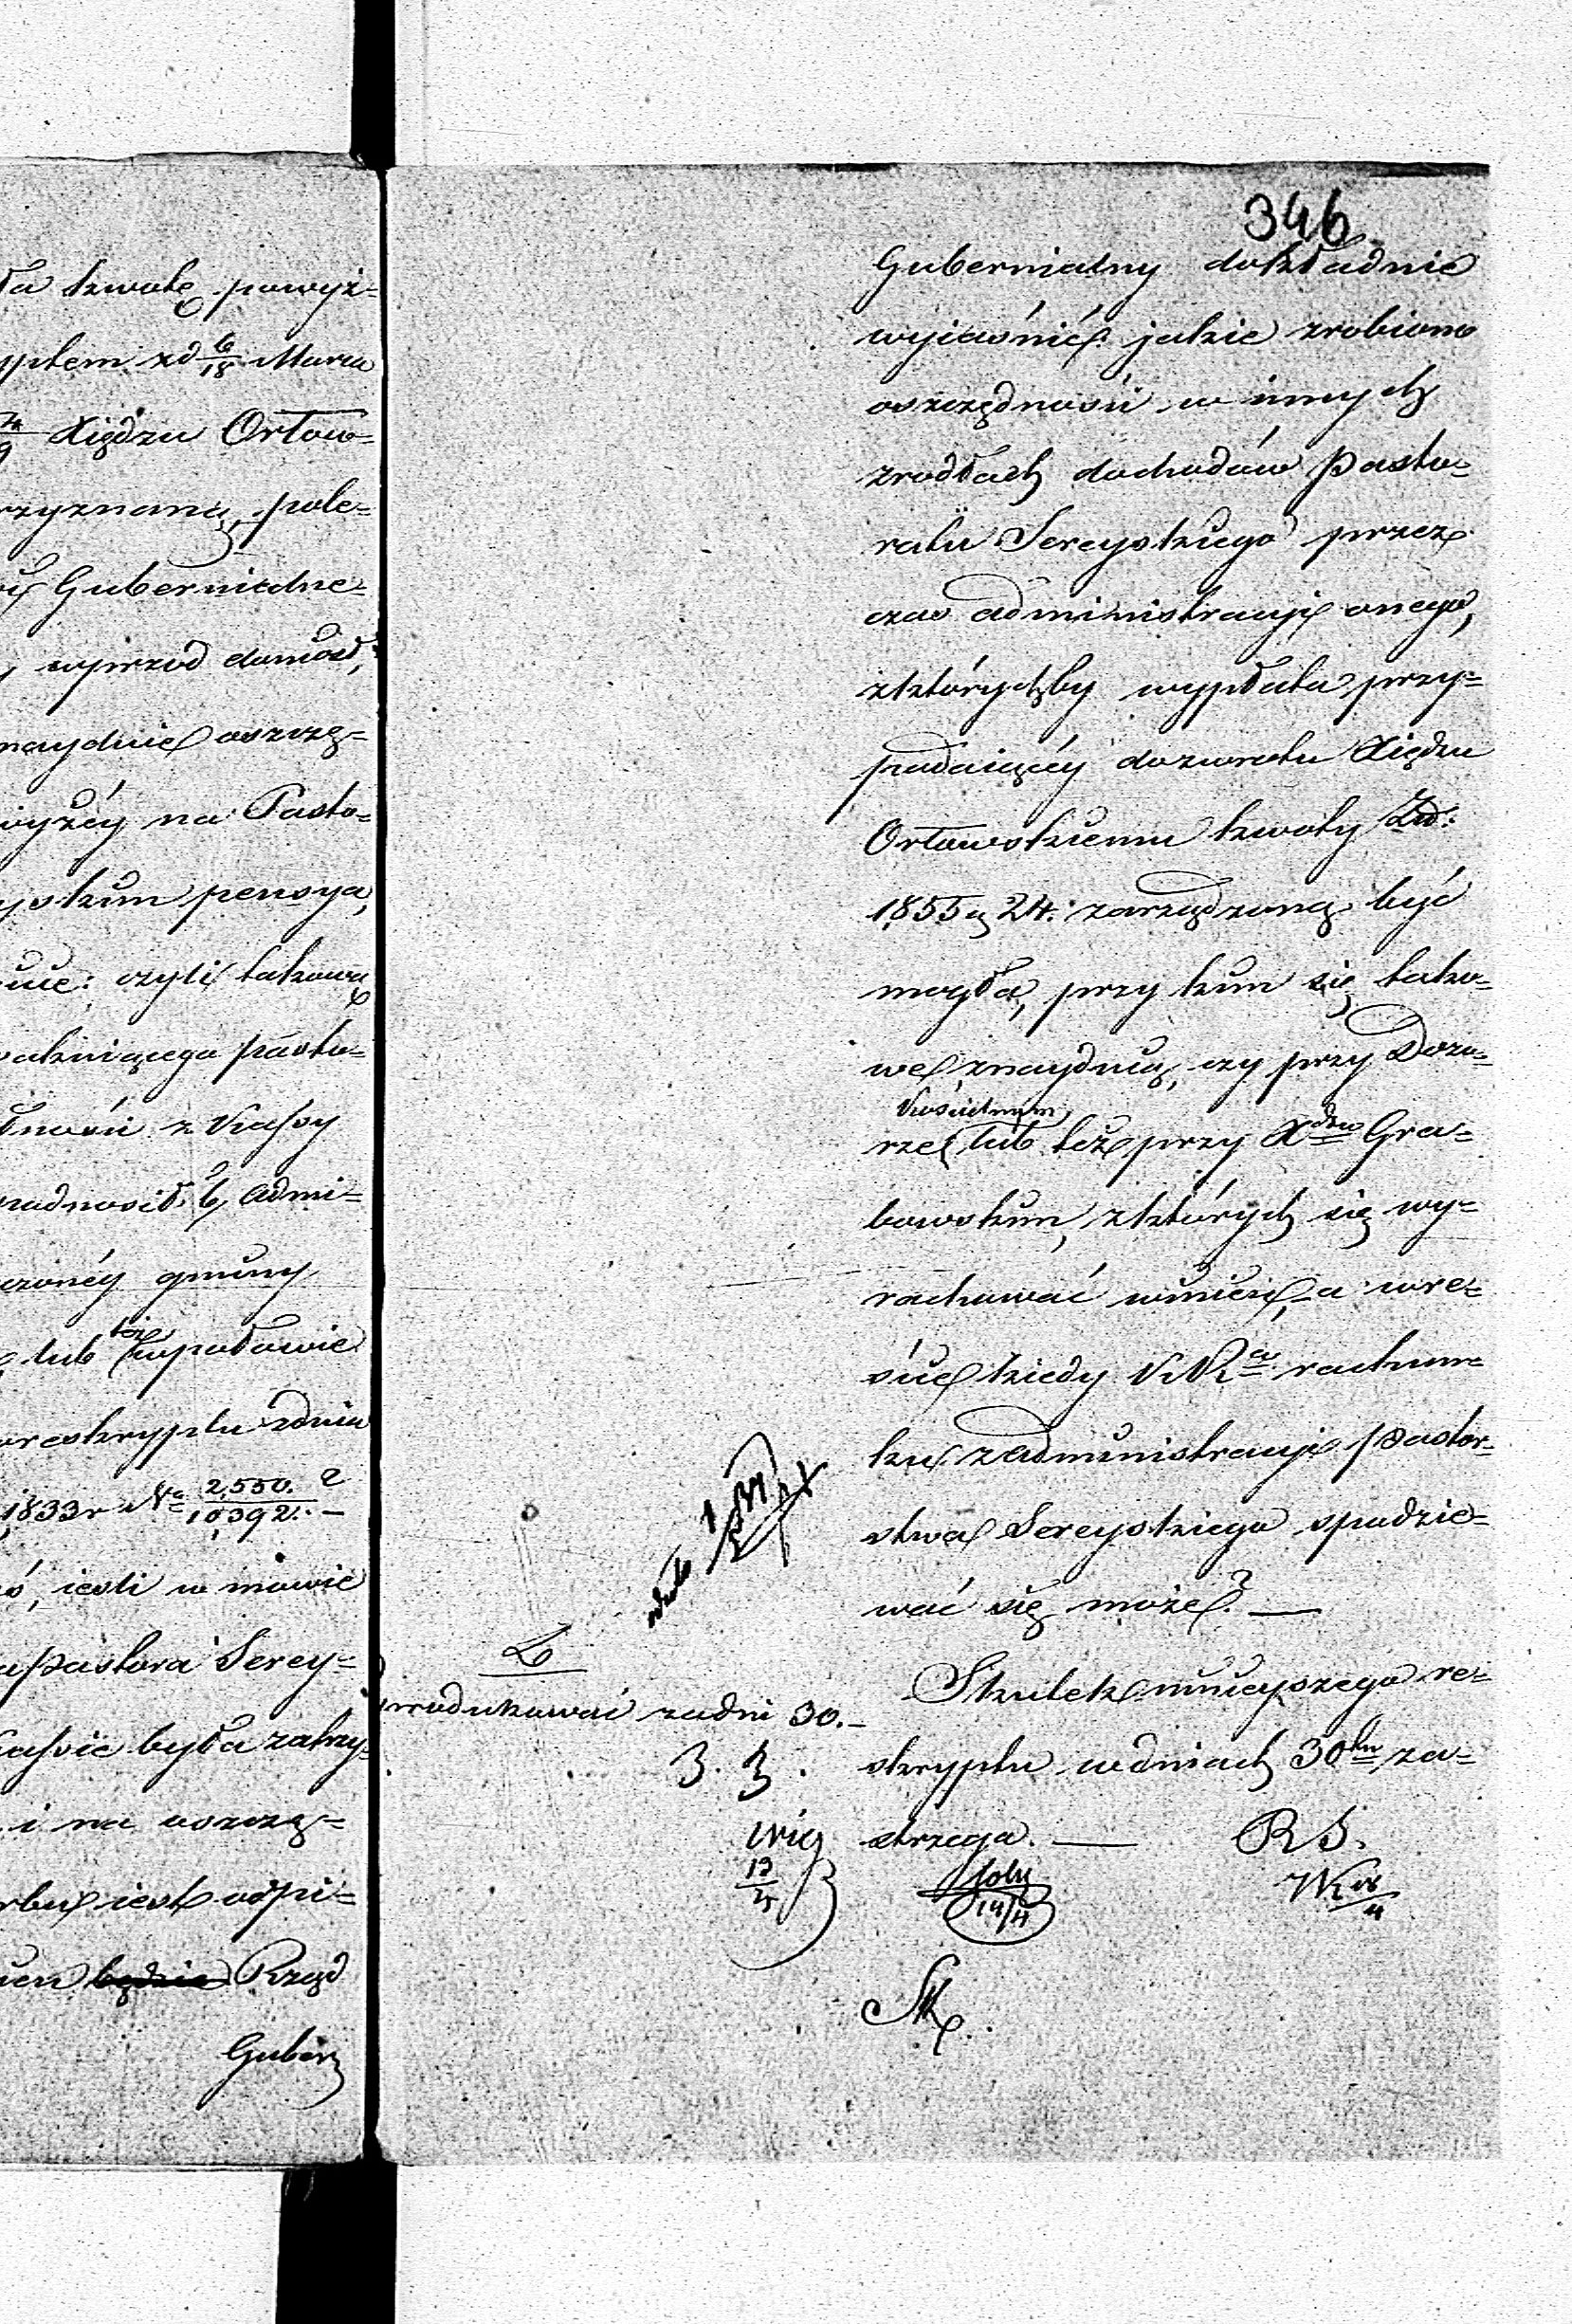 ła kwotę powyż=
yptem zd 6/18 Marca
Xiędzu Orłow=
rzyznaną, pole=
Gubernialne=
wprzod donioseł,
naydzie oszczę=
wyżéy na Pasto=
yskim pensya,
czyli takowa
wakuiącego pasto=
z Kassy
admi=
gminy
lub też w połowie
reskryptu zdnia
1833 r No 2,550./10,392. ?
iesli w mowie
pastora Serey=
Kassie była zatrzy=
i na oszczę=
iest odpi=
będzie Rząd
Guber
346
Gubernialny dokładnie
wyiaśnić: jakie zrobiono
oszczędności w innych
zrodłach dochodów Pasto=
ratu Sereyskiego przez
czas administracyi onego,
zktórychby wypłata przy=
padaiącéy do zwrotu Xiędzu
Orłowskiemu kwoty Złł:
1,855 g 24. zarządzoną być
mogła, przy kim się tako=
we znayduią, czy przy Dozo=
Kościelnym,
rze lub też przy Xdzu Gra=
bowskim, zktórych się wy=
rachować winien, a wre=
ście kiedy KRz rachun=
ku z administracyi Pastor=
stwa Sereyskiego spodzie=
wać się może? —
Skutek ninieyszego re=
skryptu w dniach 30tu za=
strzega. — R S.
L
produkować za dni 30.—